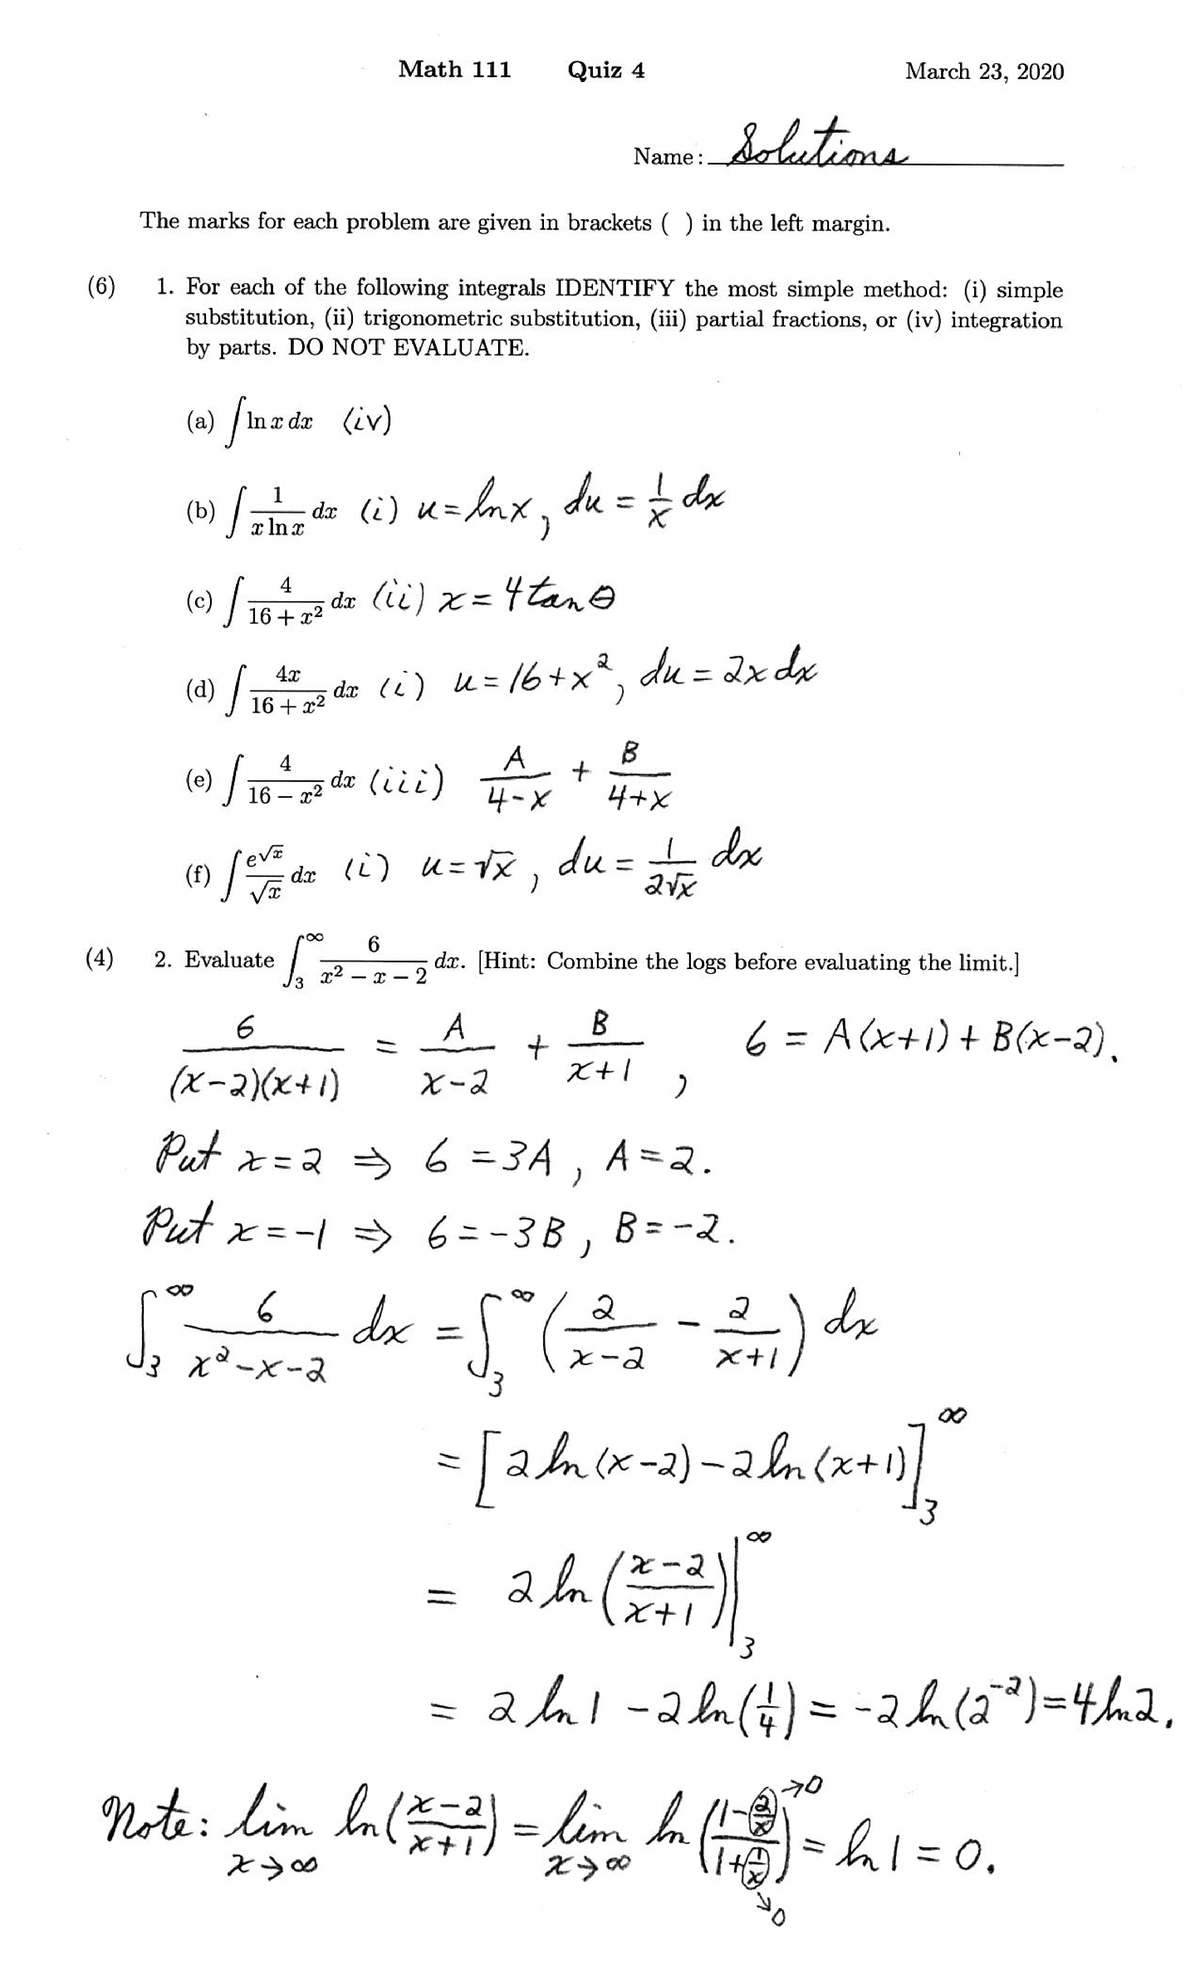 Math 111 Quiz 4 March 23, 2020
Name: Solutions
The marks for each problem are given in brackets ( ) in the left margin.
(6) 1. For each of the following integrals IDENTIFY the most simple method: (i) simple
substitution, (ii) trigonometric substitution, (iii) partial fractions, or (iv) integration
by parts. DO NOT EVALUATE.
(a) ∫ ln x dx (iv)
(b) ∫ 1/(x ln x) dx (i) u = ln x, du = 1/x dx
(c) ∫ 4/(16 + x²) dx (ii) x = 4 tan θ
(d) ∫ 4x/(16 + x²) dx (i) u = 16 + x², du = 2x dx
(e) ∫ 4/(16 − x²) dx (iii) A/(4−x) + B/(4+x)
(f) ∫ e^√x/√x dx (i) u = √x, du = 1/(2√x) dx
(4) 2. Evaluate ∫₃^∞ 6/(x² − x − 2) dx. [Hint: Combine the logs before evaluating the limit.]
6/((x−2)(x+1)) = A/(x−2) + B/(x+1), 6 = A(x+1) + B(x−2).
Put x = 2 ⇒ 6 = 3A, A = 2.
Put x = −1 ⇒ 6 = −3B, B = −2.
∫₃^∞ 6/(x²−x−2) dx = ∫₃^∞ (2/(x−2) − 2/(x+1)) dx
= [2 ln(x−2) − 2 ln(x+1)]₃^∞
= 2 ln((x−2)/(x+1))|₃^∞
= 2 ln 1 − 2 ln(1/4) = −2 ln(2⁻²) = 4 ln 2.
Note: lim x→∞ ln((x−2)/(x+1)) = lim x→∞ ln((1−2/x →0)/(1+1/x →0)) = ln 1 = 0.